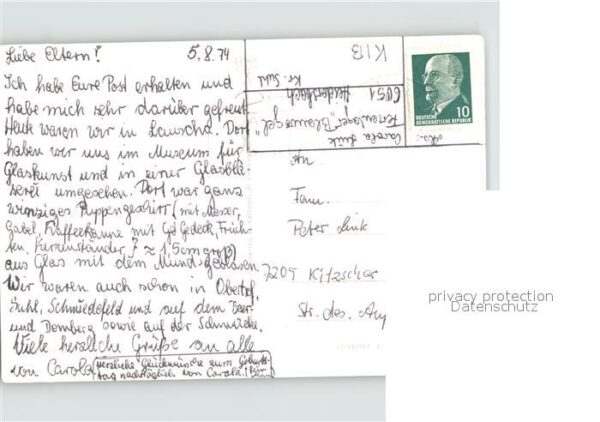 Liebe Eltern! 5.8.74
Ich habe Eure Post erhalten und
habe mich sehr darüber gefreut.
Heute waren wir in Lauscha. Dort
haben wir uns im Museum für
Glaskunst und in einer Glasblä-
serei umgesehen. Dort war ganz
winziges Puppengeschirr (mit Messer,
Gabel, Kaffeekanne mit Gedeck, Früch-
ten, Kerzenständer ≈ 1,5cm groß)
aus Glas mit dem Mund geblasen.
Wir waren auch schon in Oberhof,
Suhl, Schmiedefeld und auf dem
und Domberg sowie auf der Schmücke.
Viele herzliche Grüße an alle
von Carola
Herzliche Glückwünsche zum Geburts-
tag nachträglich von Carola!
K1B
Abs.:
Carola Link
Ferienlager "Blauvogel"
6051
Kr. Suhl
10
DEUTSCHE
DEMOKRATISCHE REPUBLIK
An
Fam.
Peter Link
7209 Kitzscher
Str. des. Auf
privacy protection
Datenschutz